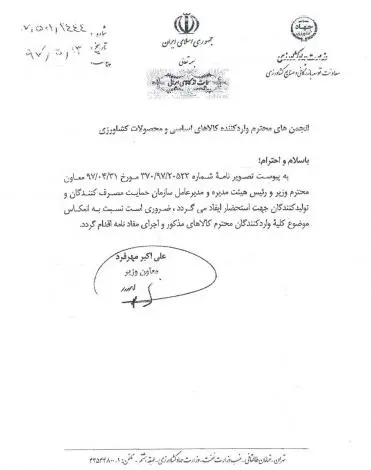 جمهوری اسلامی ایران
بسمه تعالی
وزارت جهاد کشاورزی
معاونت توسعه بازرگانی و صنایع کشاورزی
شماره:
تاریخ:
انجمن های محترم واردکننده کالاهای اساسی و محصولات کشاورزی
باسلام و احترام؛
به پیوست تصویر نامهٔ شماره ۳۷۰/۹۷/۲۰۵۲۲ مورخ ۹۷/۰۴/۳۱ معاون
محترم وزیر و رئیس هیئت مدیره و مدیرعامل سازمان حمایت مصرف کنندگان و
تولیدکنندگان جهت استحضار ایفاد می گردد ، ضروری است نسبت به انعکاس
موضوع کلیهٔ واردکنندگان محترم کالاهای مذکور و اجرای مفاد نامه اقدام گردد.
علی اکبر مهرفرد
معاون وزیر